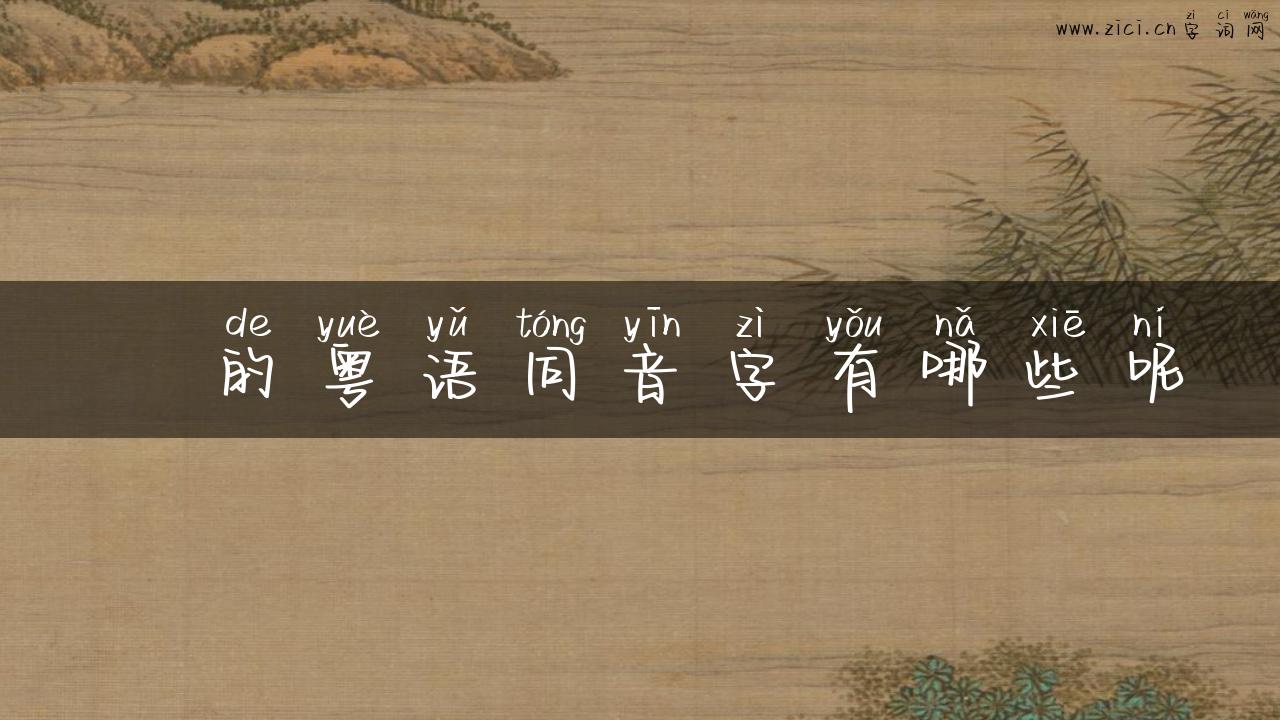 zì cí wǎng
www.zici.cn 字词网
de yuè yǔ tóng yīn zì yǒu nǎ xiē ní
的粤语同音字有哪些呢